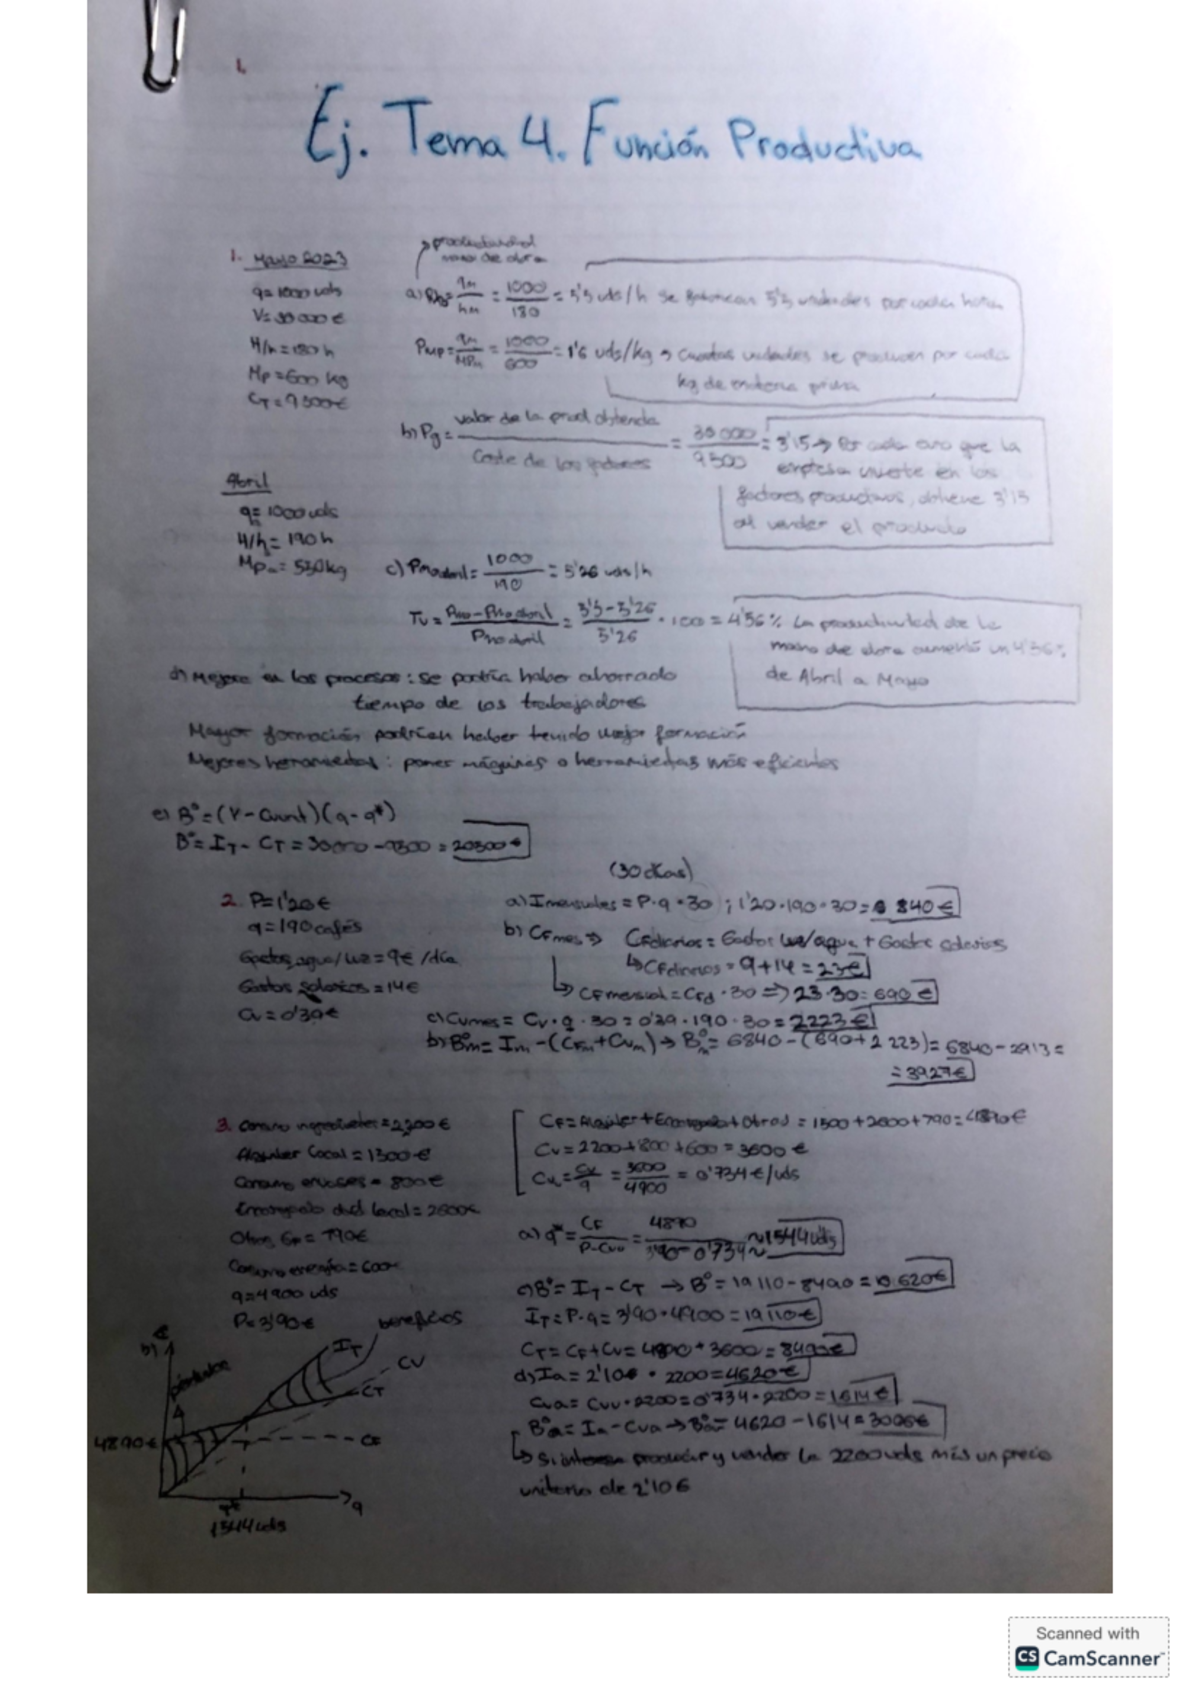 1.
Ej. Tema 4. Función Productiva
1. Mayo 2023
q = 1000 uds
V = 30 000 €
H/h = 180 h
Mp = 600 kg
CT = 9500€
productividad
mano de obra
a) = qm/hm = 1000/180 = 5'5 uds/h Se fabrican 5'5 unidades por cada hora
Pmp = qm/MPm = 1000/600 = 1'6 uds/kg → Cuantas unidades se producen por cada
kg de materia prima
b) Pg = valor de la prod obtenida / Coste de los factores = 30 000/9500 = 3'15 → Por cada euro que la
empresa invierte en los
factores productivos, obtiene 3'15
al vender el producto
Abril
q = 1000 uds
H/h = 190 h
Mpa = 550kg
c) = 1000/190 = 5'26 uds/h
Tv = = 5'5 - 5'26/5'26 · 100 = 4'56% La productividad de la
mano de obra aumentó un 4'56%
de Abril a Mayo
d) Mejora en los procesos: se podría haber ahorrado
tiempo de los trabajadores
Mayor formación podrían haber tenido mejor formación
Mejores herramientas: poner máquinas o herramientas más eficientes
e) Bº = (q - q*)
Bº = IT - CT = 30000 - 9500 = 20500€
(30 días)
2. P = 1'20€
q = 190 cafés
Gastos agua/luz = 9€ /día
Gastos salarios = 14€
a) Imensuales = P · q · 30 ; 1'20 · 190 · 30 = 6 840€
b) CFmes ⇒ CFdiarios = Gastos luz/agua + Gastos salarios
↳ CFdiarios = 9 + 14 = 23€
↳ CFmensual = CFd · 30 ⇒ 23 · 30 = 690 €
c) Cvmes = Cv · q · 30 = 0'39 · 190 · 30 = 2223€
b) Bºm = Im - (CFm + Cvm) → Bºm = 6840 - (690 + 2 223) = 6840 - 2913 =
= 3927€
3. Consumo ingredientes = 2200€
Alquiler local = 1500€
Consumo envases = 800€
Encargado del local = 2600€
Otros = 790€
Consumo energía = 600€
q = 4900 uds
P = 3'90€
CF = Alquiler + Encargado + Otros = 1500 + 2600 + 790 = 4890€
Cv = 2200 + 800 + 600 = 3600 €
= Cv/q = 3600/4900 = 0'734€/uds
a) q* = CF/P - = 4890/3'90 - 0'734 ≈ 1544 uds
c) Bº = IT - CT → Bº = 19 110 - 8490 = 10.620€
IT = P · q = 3'90 · 4900 = 19110€
CT = CF + Cv = 4890 + 3600 = 8490€
d) Ia = 2'10€ · 2200 = 4620€
Cva = · 2200 = 0'734 · 2200 = 1614€
Bºa = Ia - Cva → Bºa = 4620 - 1614 = 3006€
↳ Si interesa producir y vender la 2200 uds más un precio
unitario de 2'10€
b)
€
pérdidas
beneficios
IT
CV
CT
CF
4890€
q
q*
1544 uds
Scanned with
CS CamScanner